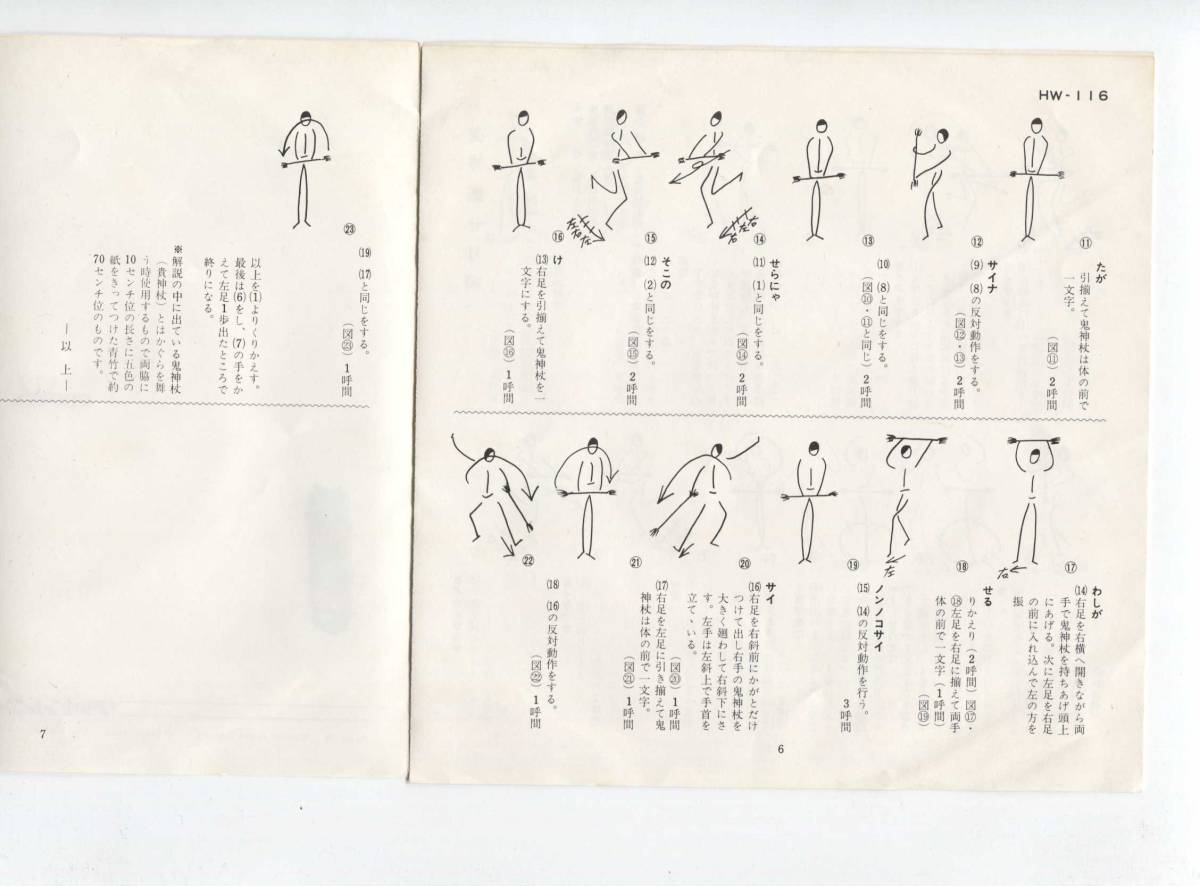 HW-116
⑪
たが
引揃えて鬼神杖は体の前で
一文字。
(図⑪) 2呼間
⑫
サイナ
(9) (8)の反対動作をする。
(図⑫・⑬) 2呼間
⑬
(10) (8)と同じをする。
(図⑩・⑪と同じ) 2呼間
⑭
右
左
右
せらにゃ
(11) (1)と同じをする。
(図⑭) 2呼間
⑮
左
右
左
そこの
(12) (2)と同じをする。
(図⑮) 2呼間
⑯
け
(13)右足を引揃えて鬼神杖を一
文字にする。
(図⑯) 1呼間
⑰
右
わしが
(14)右足を右横へ開きながら両
手で鬼神杖を持ちあげ頭上
にあげる。次に左足を右足
の前に入れ込んで左の方を
振
⑱
左
せる
りかえり(2呼間)図⑰・
⑱左足を右足に揃えて両手
体の前で一文字(1呼間)
(図⑲)
⑲
ノンノコサイ
(15) (14)の反対動作を行う。
3呼間
⑳
サイ
(16)右足を右斜前にかがとだけ
つけて出し右手の鬼神杖を
大きく廻わして右斜下にさ
す。左手は左斜上で手首を
立てゝいる。
(図⑳) 1呼間
㉑
(17)右足を左足に引き揃えて鬼
神杖は体の前で一文字。
(図㉑) 1呼間
㉒
(18) (16)の反対動作をする。
(図㉒) 1呼間
6
㉓
(19) (17)と同じをする。
(図㉓) 1呼間
以上を(1)よりくりかえす。
最後は(6)をし、(7)の手をか
えて左足1歩出たところで
終りになる。
※解説の中に出ている鬼神杖
(貴神杖)とはかぐらを舞
う時使用するもので両脇に
10センチ位の長さに五色の
紙をきってつけた青竹で約
70センチ位のものです。
―以 上―
7